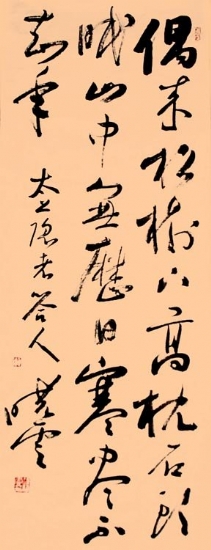 偶来松樹下高枕石头
眠山中無歷日寒尽不
知年 太上隐者答人 曉雲